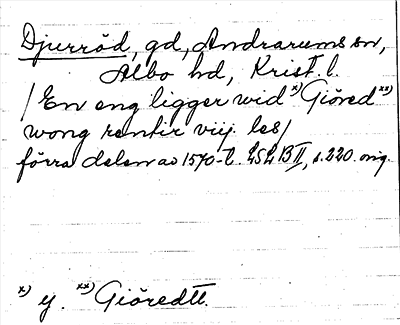 Djurröd, gd, Andrarums sn,
Albo hd, Krist. l.
/ En eng ligger wid x) Giöred xx)
wong rentir viij les /
förra delen av 1570-t. LSLB II, s. 220. orig.
x) y. xx) Giöredtt.